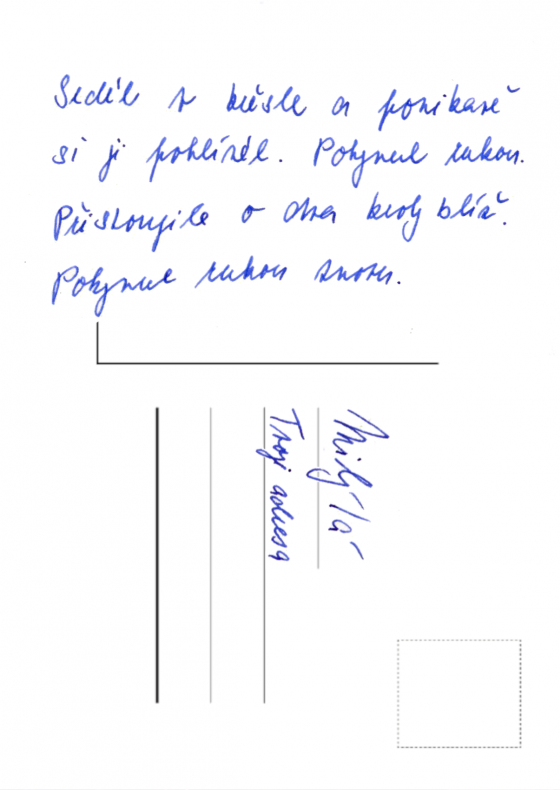 Seděl v křesle a ponikavě
si ji pohlížel. Pokynul rukou.
Přistoupila o dva kroky blíž.
Pokynul rukou znovu.
Milý/á
Tvoji adresa